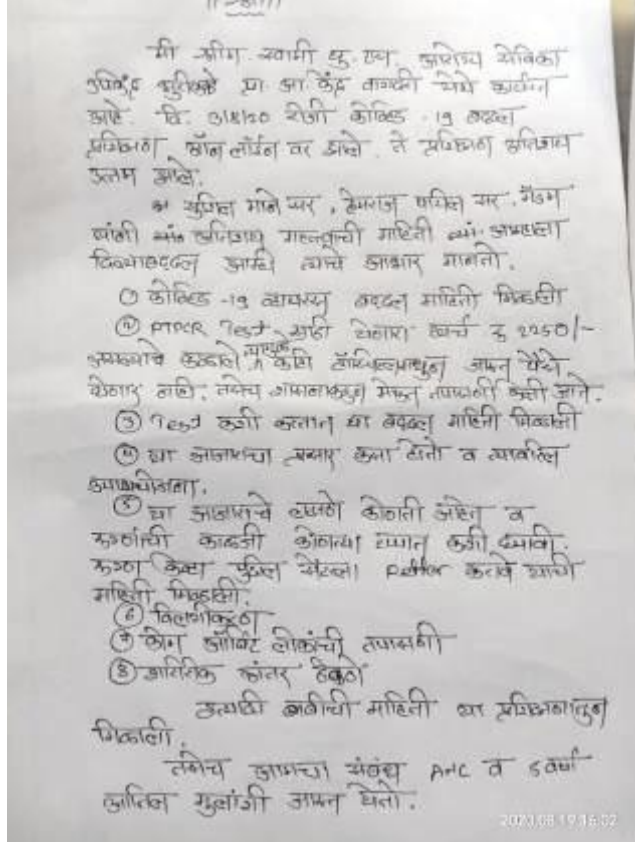 मी श्रीम. स्वामी यु. एय. आरोग्य सेविका
उपकेंद्र प्रा. आ. केंद्र वागदरी येथे कार्यरत
आहे. दि. 3/8/20 रोजी कोव्हिड -19 बद्दल
प्रशिक्षण ऑनलाईन वर झाले. ते प्रशिक्षण अतिशय
उत्तम झाले.
सुनिल माने सर, हेमराज पाटील सर, मॅडम
यांनी अतिशय महत्वाची माहिती आम्हाला
दिल्याबद्दल आम्ही त्याचे आभार मानतो.
① कोव्हिड -19 व्हायरस बद्दल माहिती मिळाली
② RTPCR Test साठी येणारा खर्च रु 2250/-
असल्याचे कळाले त्यामुळे कोणी
येणार नाही. तसेच शासनाकडून मोफत तपासणी केली जाते.
③ Test कशी करतात या बद्दल माहिती मिळाली
④ या आजाराचा प्रसार कसा होतो व त्यावरील
उपाययोजना.
⑤ या आजाराचे लक्षणे कोणती आहेत व
रुग्णांची काळजी कोणत्या टप्यात कशी घ्यावी.
रुग्ण केव्हा पुढील सेंटरला Reffer करावे याची
माहिती मिळाली.
⑥ विलगीकरण
⑦ कोमॉर्बिट लोकांची तपासणी
⑧ शारिरिक अंतर ठेवणे
इत्यादी बाबीची माहिती या प्रशिक्षणातून
मिळाली.
तसेच आमचा संबंध ANC व 5 वर्षा
आतिल मुलांशी जास्त येतो.
2020.08.19 16:02